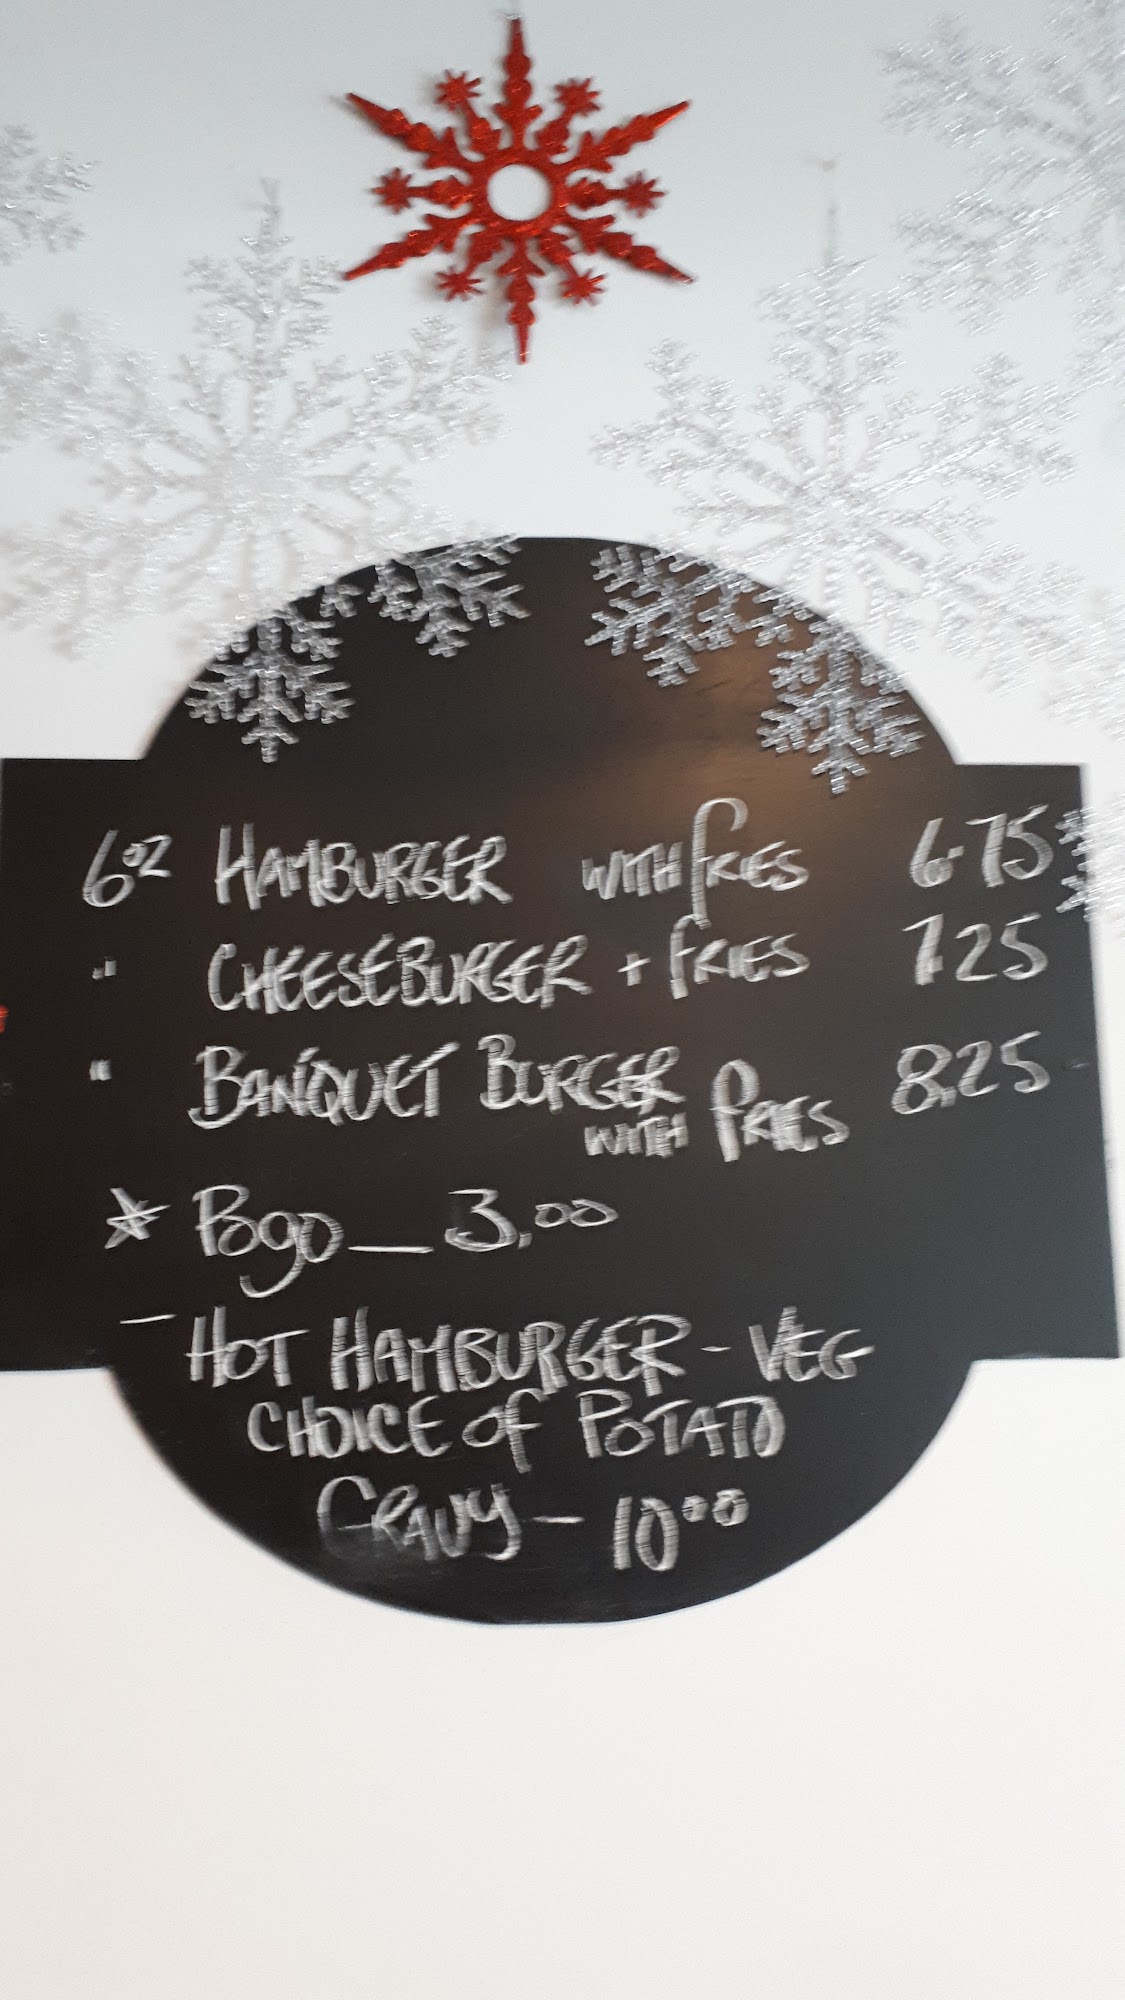 6oz HAMBURGER with fries 6.75
" CHEESEBURGER + fries 7.25
" BANQUET BURGER 8.25
with fries
☆ Pogo — 3.00
- HOT HAMBURGER - VEG
CHOICE of POTATO
GRAVY - 10.00